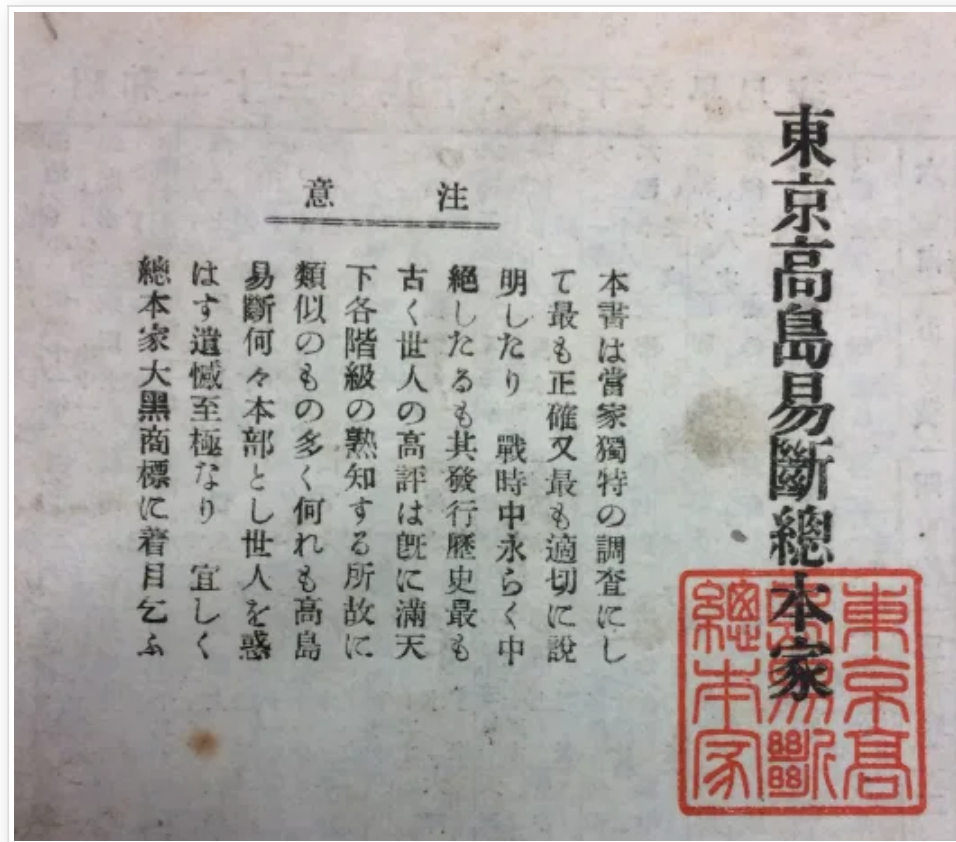 東京高島易斷總本家
東京高
島易斷
總本家
注意
本書は當家獨特の調査にし
て最も正確又最も適切に說
明したり　戰時中永らく中
絕したるも其發行歷史最も
古く世人の高評は旣に滿天
下各階級の熟知する所故に
類似のもの多く何れも高島
易斷何々本部とし世人を惑
はす遺憾至極なり　宜しく
總本家大黑商標に着目乞ふ